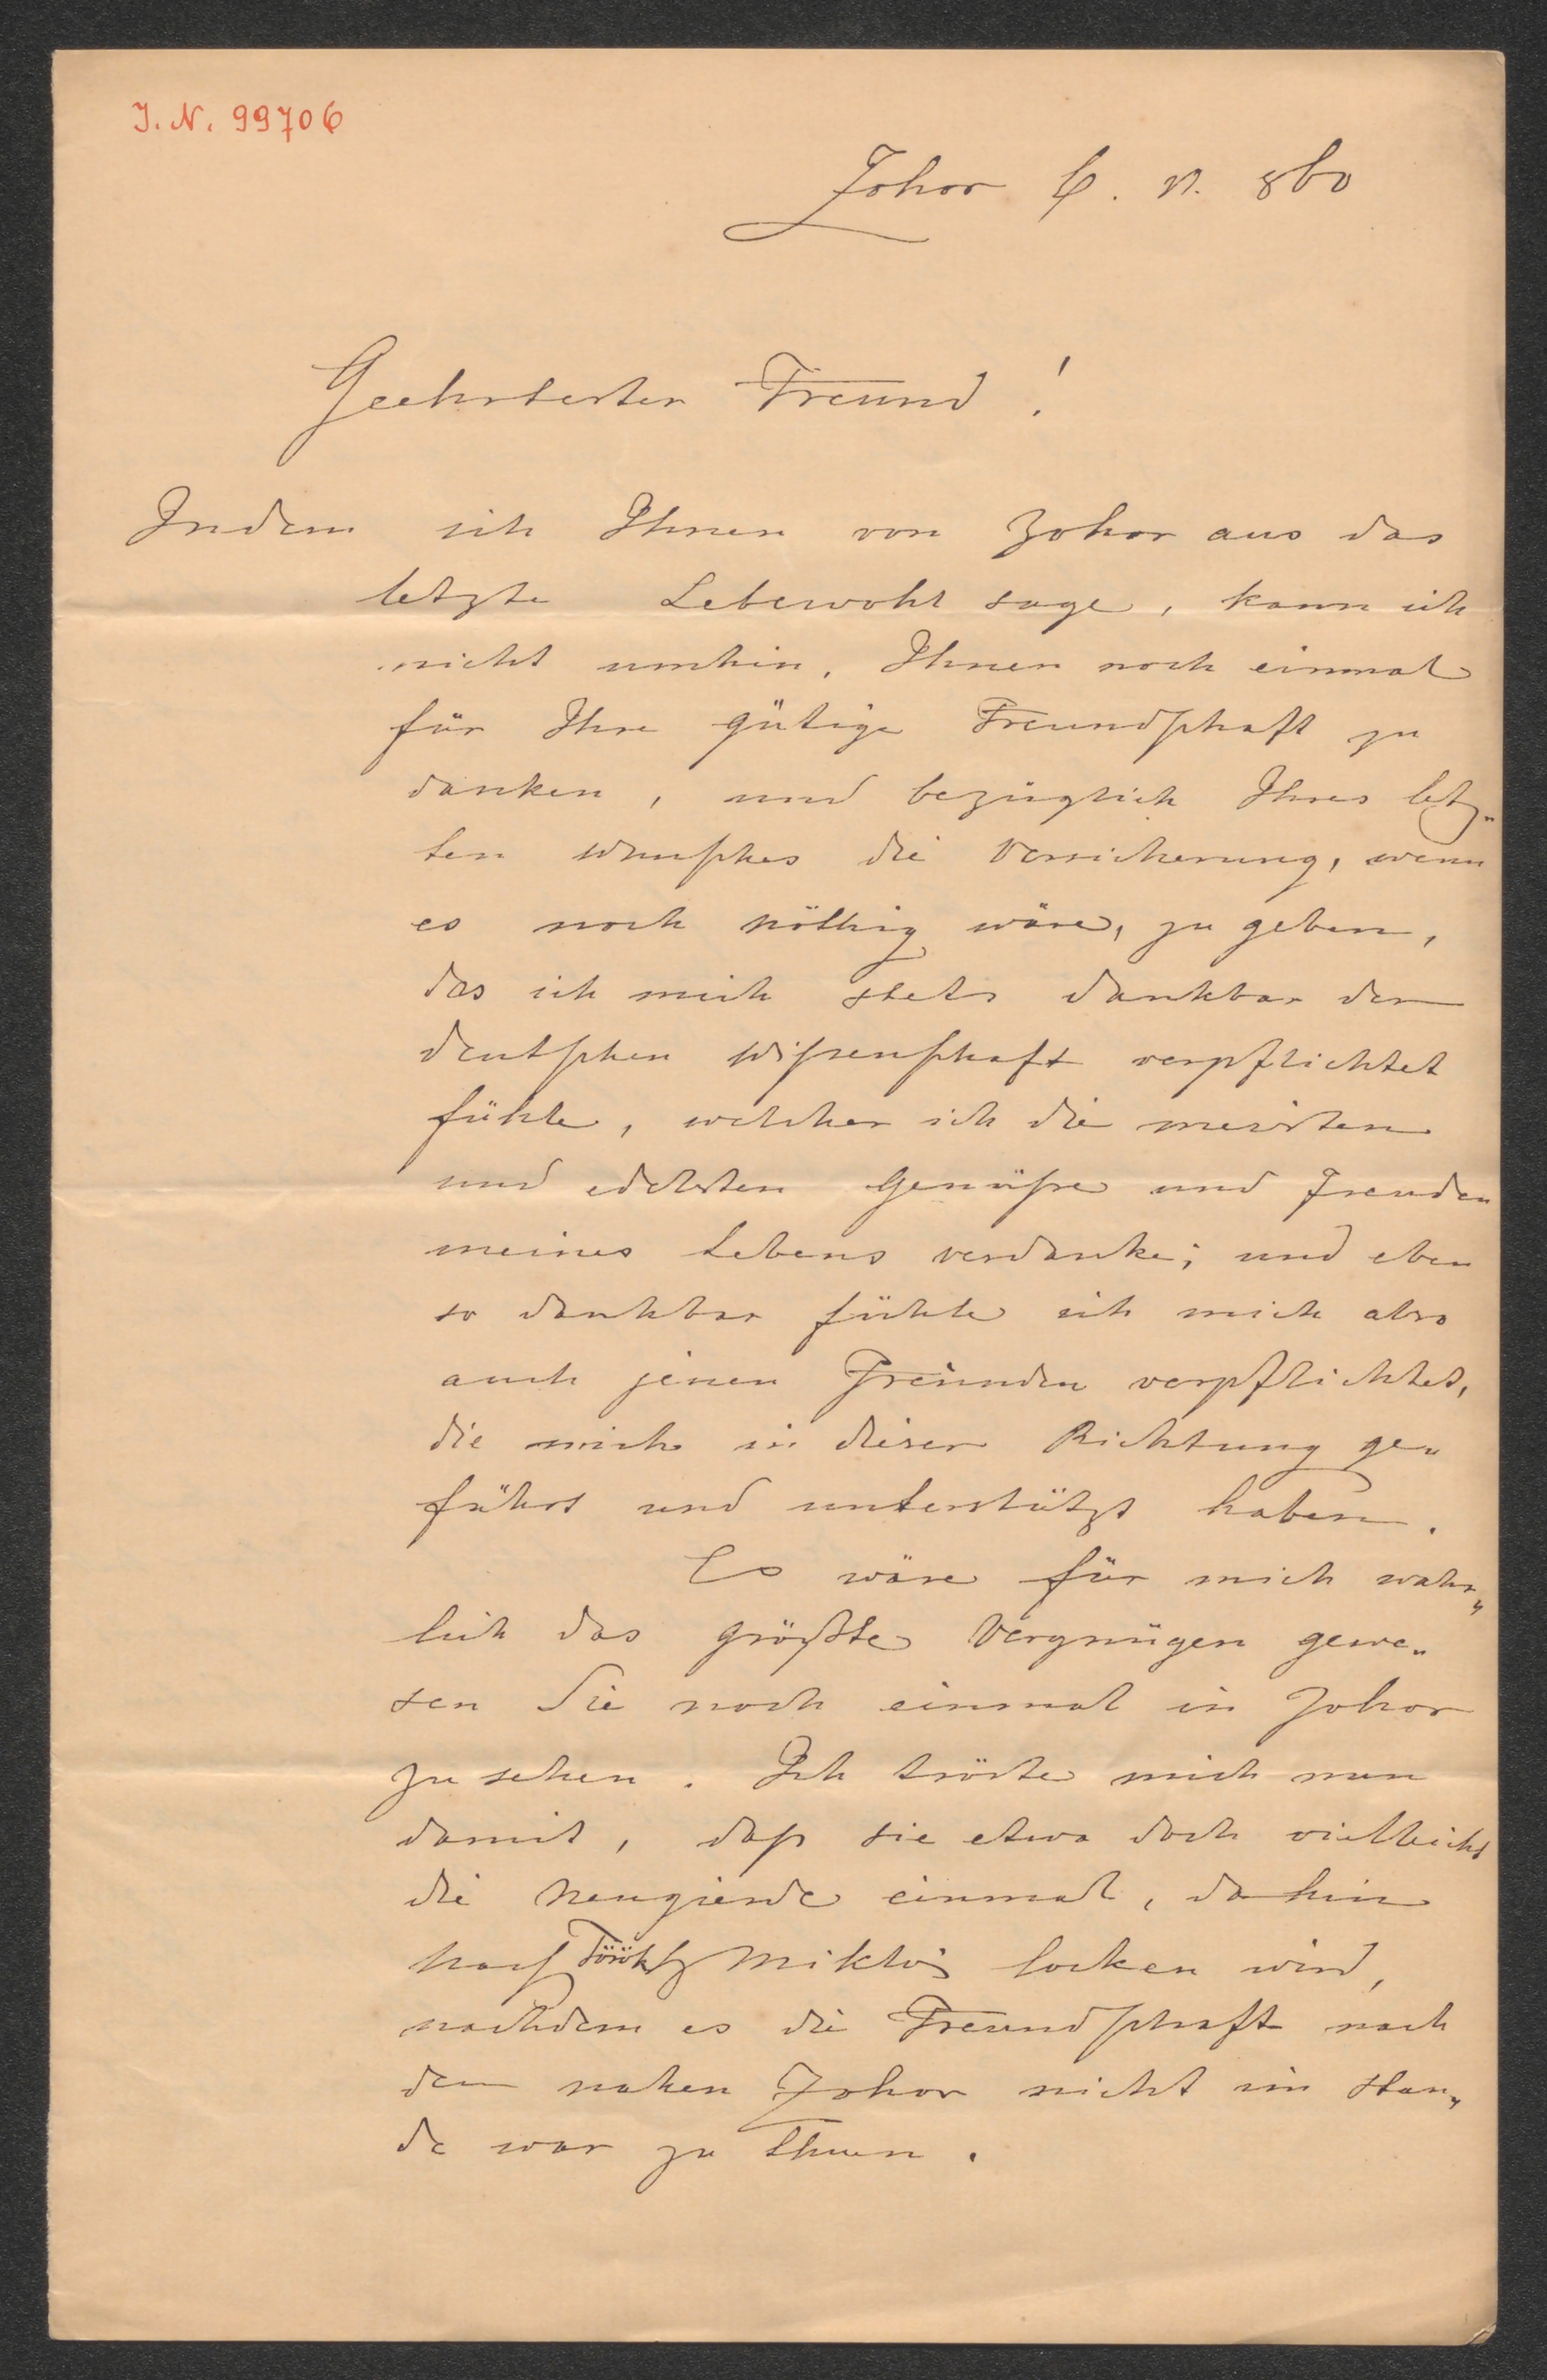 I. N. 99706
Zohor 6. n. 860
Geehrtester Freund!
Indem ich Ihnen von Zohor aus das
letzte Lebewohl sage, kann ich
nicht umhin, Ihnen noch einmal
für Ihre gütige Freundschaft zu
danken, und bezüglich Ihres letz„
ten Wunsches die Versicherung, wenn
es noch nöthig wäre, zu geben,
das ich mich stets dankbar der
deutschen Wissenschaft verpflichtet
fühle, welcher ich die meisten
und edelsten Genüsse und Freuden
meines Lebens verdanke; und eben
so dankbar fühle ich mich also
auch jenen Freunden verpflichtet,
die mich in dieser Richtung ge„
führt und unterstützt haben.
Es wäre für mich wahr„
lich das größte Vergnügen gewe„
sen Sie noch einmal in Zohor
zu sehen. Ich tröste mich nun
damit, dass sie etwa doch vielleicht
die Neugierde einmal, dahin
nach Török Sz Miklós locken wird,
nachdem es die Freundschaft nach
dem nahen Zohor nicht im Stan„
de war zu thuen.